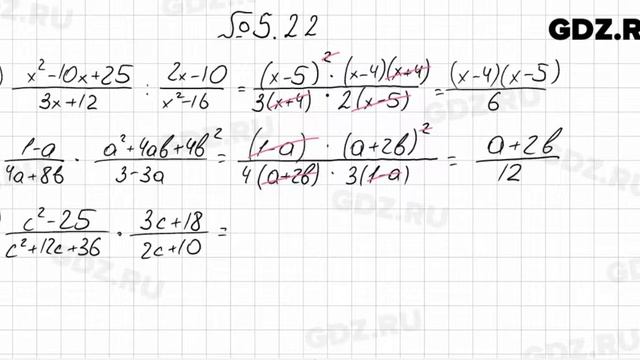 №5.22
GDZ.R
) (x²-10x+25)/(3x+12) : (2x-10)/(x²-16) = ((x-5)²·(x-4)(x+4))/(3(x+4)·2(x-5)) = ((x-4)(x-5))/6
(1-a)/(4a+8b) · (a²+4ab+4b²)/(3-3a) = ((1-a)·(a+2b)²)/(4(a+2b)·3(1-a)) = (a+2b)/12
) (c²-25)/(c²+12c+36) · (3c+18)/(2c+10) =
GDZ.RU